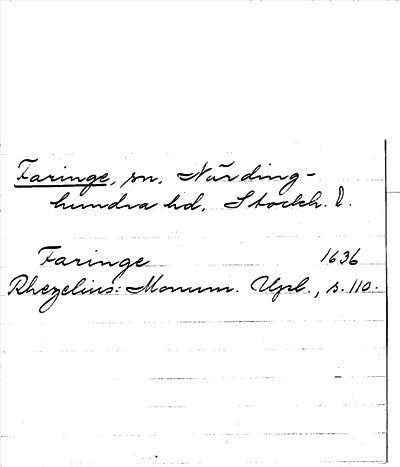 Faringe, sn, Närding-
hundra hd, Stockh. l.
Faringe 1636
Rhezelius: Monum. Upl., s. 110.